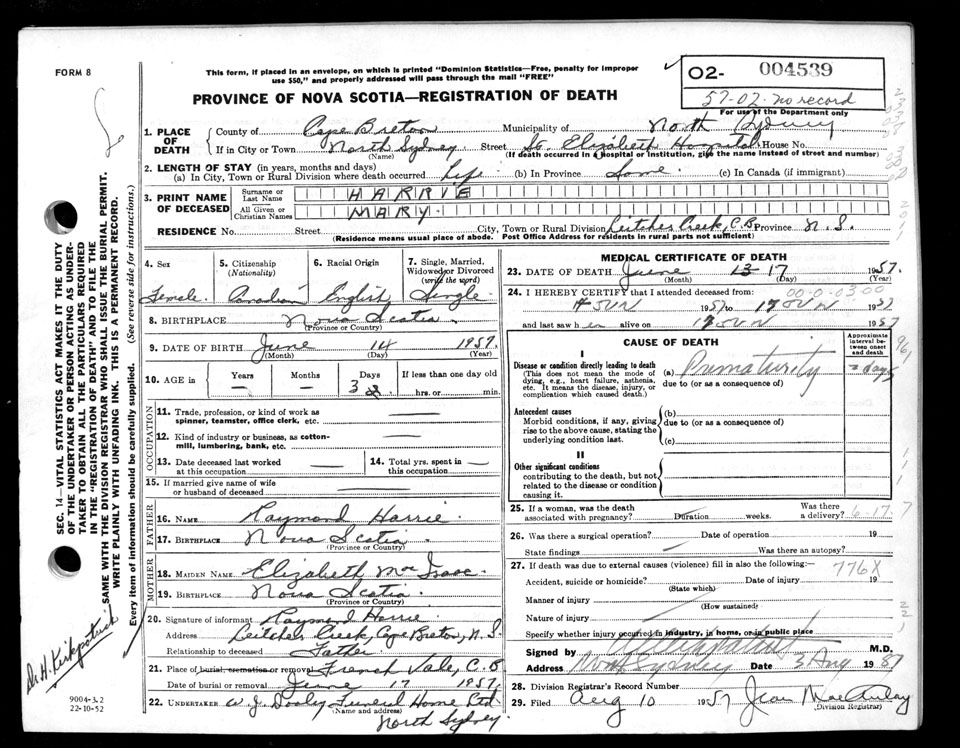 FORM 8
This form, if placed in an envelope, on which is printed "Dominion Statistics—Free, penalty for improper
use $50," and properly addressed will pass through the mail "FREE"
O2- 004539
57-02-no record
For use of the Department only
PROVINCE OF NOVA SCOTIA—REGISTRATION OF DEATH
1. PLACE OF DEATH County of Cape Breton Municipality of North Sydney
If in City or Town North Sydney (Name) Street St. Elizabeth Hospital House No.
(If death occurred in a Hospital or Institution, give the name instead of street and number)
2. LENGTH OF STAY (in years, months and days)
(a) In City, Town or Rural Division where death occurred Life (b) In Province Same (c) In Canada (if immigrant)
3. PRINT NAME OF DECEASED Surname or Last Name HARRIE
All Given or Christian Names MARY.
RESIDENCE No. Street City, Town or Rural Division Leitches Creek, C.B. Province N.S.
(Residence means usual place of abode. Post Office Address for residents in rural parts not sufficient)
4. Sex Female 5. Citizenship (Nationality) Canadian 6. Racial Origin English 7. Single, Married, Widowed or Divorced (write the word) Single
8. BIRTHPLACE Nova Scotia.
(Province or Country)
9. DATE OF BIRTH June 14 1957.
(Month) (Day) (Year)
10. AGE in Years — Months — Days 3 If less than one day old hrs. or min.
OCCUPATION
11. Trade, profession, or kind of work as spinner, teamster, office clerk, etc. —
12. Kind of industry or business, as cotton-mill, lumbering, bank, etc. —
13. Date deceased last worked at this occupation — 14. Total yrs. spent in this occupation —
15. If married give name of wife or husband of deceased —
FATHER
16. NAME Raymond Harrie
17. BIRTHPLACE Nova Scotia
(Province or Country)
MOTHER
18. MAIDEN NAME Elizabeth MacIsaac.
19. BIRTHPLACE Nova Scotia
(Province or Country)
20. Signature of informant Raymond Harrie
Address Leitches Creek, Cape Breton, N.S.
Relationship to deceased Father
21. Place of burial, cremation or removal French Vale, C.B
Date of burial or removal June 17 1957.
22. UNDERTAKER W. J. Dooly Funeral Home Ltd
(Name and address)
North Sydney.
MEDICAL CERTIFICATE OF DEATH
23. DATE OF DEATH June 13-17 1957.
(Month) (Day) (Year)
24. I HEREBY CERTIFY that I attended deceased from: 00-0-03 00
JUN 1957 to 17 JUN 1957
and last saw h er alive on 17 JUN 1957
CAUSE OF DEATH
Approximate interval between onset and death
I
Disease or condition directly leading to death
(This does not mean the mode of dying, e.g., heart failure, asthenia, etc. It means the disease, injury, or complication which caused death.)
(a) Prematurity days
due to (or as a consequence of)
Antecedent causes
Morbid conditions, if any, giving rise to the above cause, stating the underlying condition last.
(b)
due to (or as a consequence of)
(c)
II
Other significant conditions
contributing to the death, but not related to the disease or condition causing it.
25. If a woman, was the death associated with pregnancy? Duration weeks. Was there a delivery? 6-17 7
26. Was there a surgical operation? Date of operation 19
State findings — Was there an autopsy?
27. If death was due to external causes (violence) fill in also the following:— 776X
Accident, suicide or homicide? Date of injury 19
(State which)
Manner of injury
(How sustained)
Nature of injury
Specify whether injury occurred in industry, in home, or in public place
Signed by M.D.
Address North Sydney Date 3 Aug 1957
28. Division Registrar's Record Number
29. Filed Aug 10 1957 Jean MacAulay
(Division Registrar)
SEC. 14—VITAL STATISTICS ACT MAKES IT THE DUTY
OF THE UNDERTAKER OR PERSON ACTING AS UNDER-
TAKER TO OBTAIN ALL THE PARTICULARS REQUIRED
IN THE "REGISTRATION OF DEATH" AND TO FILE THE
SAME WITH THE DIVISION REGISTRAR WHO SHALL ISSUE THE BURIAL PERMIT.
WRITE PLAINLY WITH UNFADING INK. THIS IS A PERMANENT RECORD.
Every item of information should be carefully supplied. (See reverse side for instructions.)
Dr. H. Kirkpatrick
9004-3.2
22-10-52